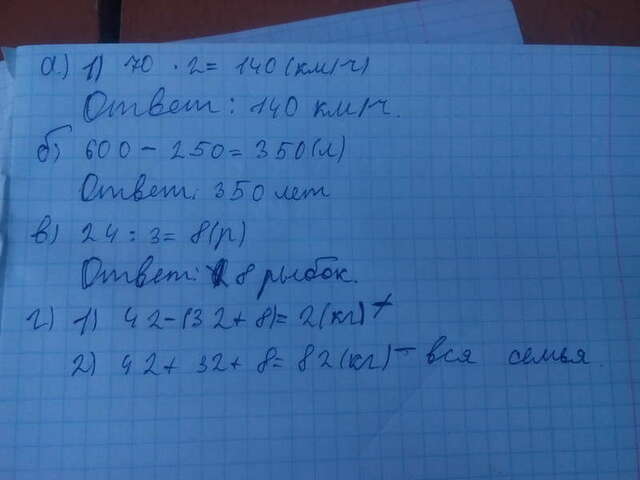 а) 1) 70 · 2 = 140 (км/ч)
Ответ: 140 км/ч.
б) 600 - 250 = 350 (л)
Ответ: 350 лет
в) 24 : 3 = 8 (р)
Ответ: 8 рыбок.
г) 1) 42 - (32 + 8) = 2 (кг) +
2) 42 + 32 + 8 = 82 (кг) - вся семья.